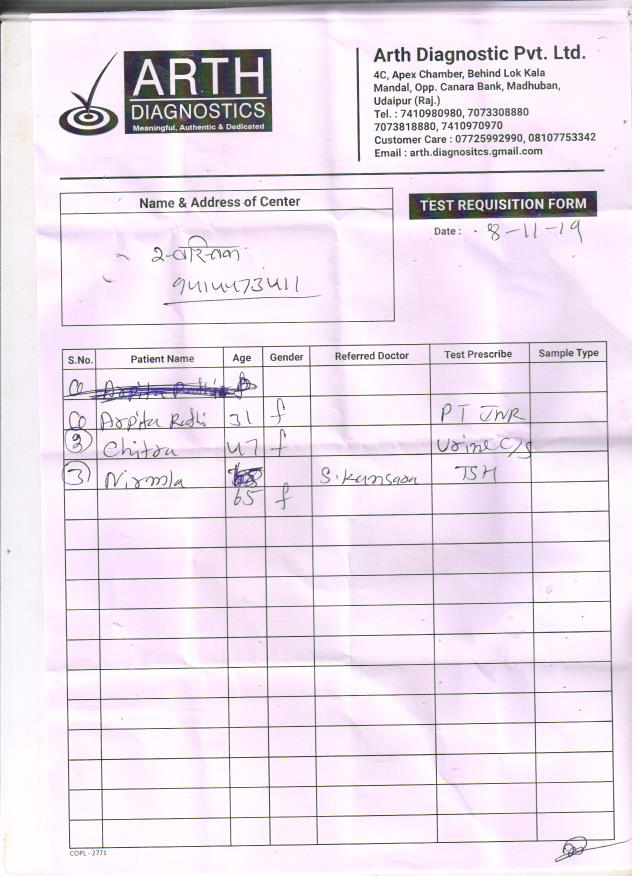 ARTH
DIAGNOSTICS
Meaningful, Authentic & Dedicated
Arth Diagnostic Pvt. Ltd.
4C, Apex Chamber, Behind Lok Kala
Mandal, Opp. Canara Bank, Madhuban,
Udaipur (Raj.)
Tel. : 7410980980, 7073308880
7073818880, 7410970970
Customer Care : 07725992990, 08107753342
Email : arth.diagnositcs.gmail.com
Name & Address of Center
TEST REQUISITION FORM
Date : 8-11-19
9414473411
S.No. Patient Name Age Gender Referred Doctor Test Prescribe Sample Type
Arpita Rathi 31 f PT INR
2 Chitra 47 f Urine C/s
3 Nirmla S. TSH
65 f
COPL - 2771